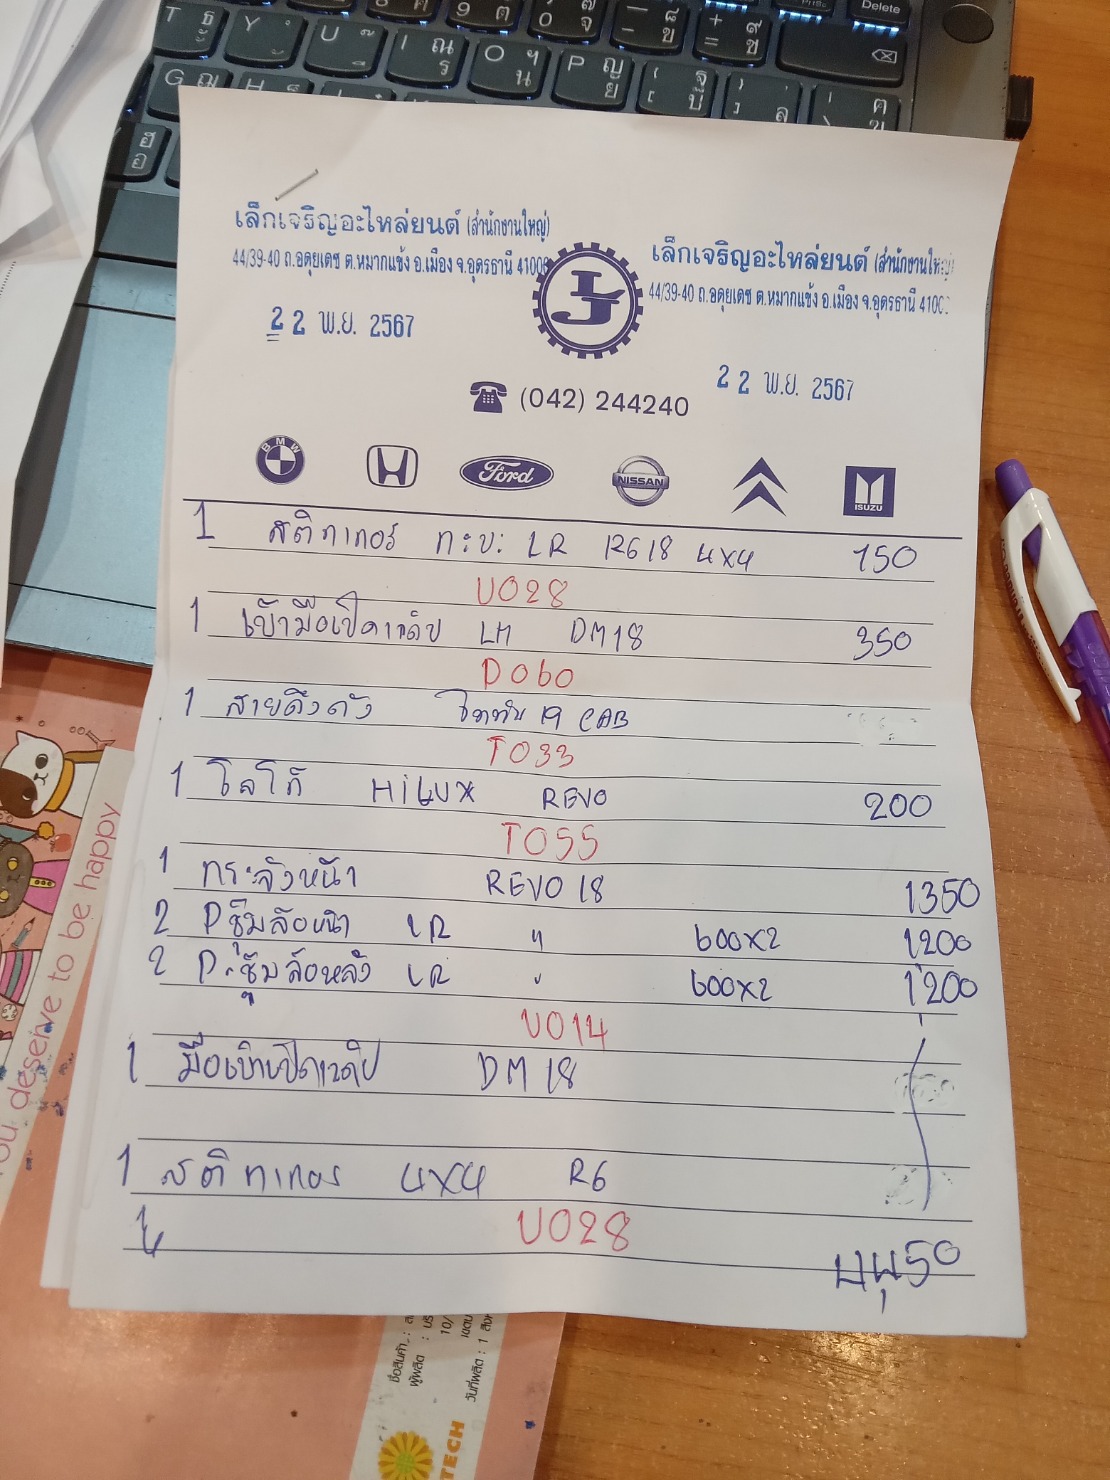 Delete
เล็กเจริญอะไหล่ยนต์ (สำนักงานใหญ่)
44/39-40 ถ.อดุยเดช ต.หมากแข้ง อ.เมือง จ.อุดรธานี 41000
22 พ.ย. 2567
LJ
เล็กเจริญอะไหล่ยนต์ (สำนักงานใหญ่)
44/39-40 ถ.อดุยเดช ต.หมากแข้ง อ.เมือง จ.อุดรธานี 4100
22 พ.ย. 2567
(042) 244240
BMW
Ford
NISSAN
ISUZU
1 สติกเกอร์ กะบะ LR R618 4x4 150
U028
1 เบ้ามือเปิดแค็ป LH DM18 350
D060
1 สายดึงถัง ไททัน 19 CAB
T033
1 โลโก้ HiLUX REVO 200
T055
1 กระจังหน้า REVO 18 1350
2 Pซุ้มล้อหน้า LR " 600x2 1200
2 P.ซุ้มล้อหลัง LR " 600x2 1200
U014
1 มือเบ้าเปิดแค็ป DM 18
1 สติกเกอร์ 4x4 R6
U028
4450
You deserve to be happy
TECH